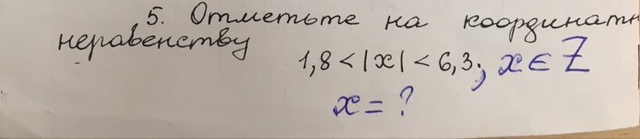 5. Отметьте на координатн
неравенству
1,8 < |x| < 6,3; x ∈ Z
x = ?